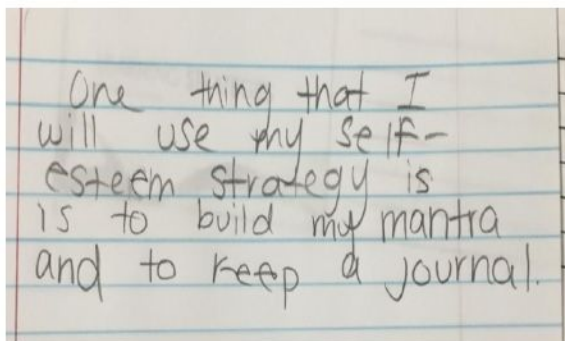 One thing that I
will use my self-
esteem strategy is
is to build my mantra
and to keep a journal.